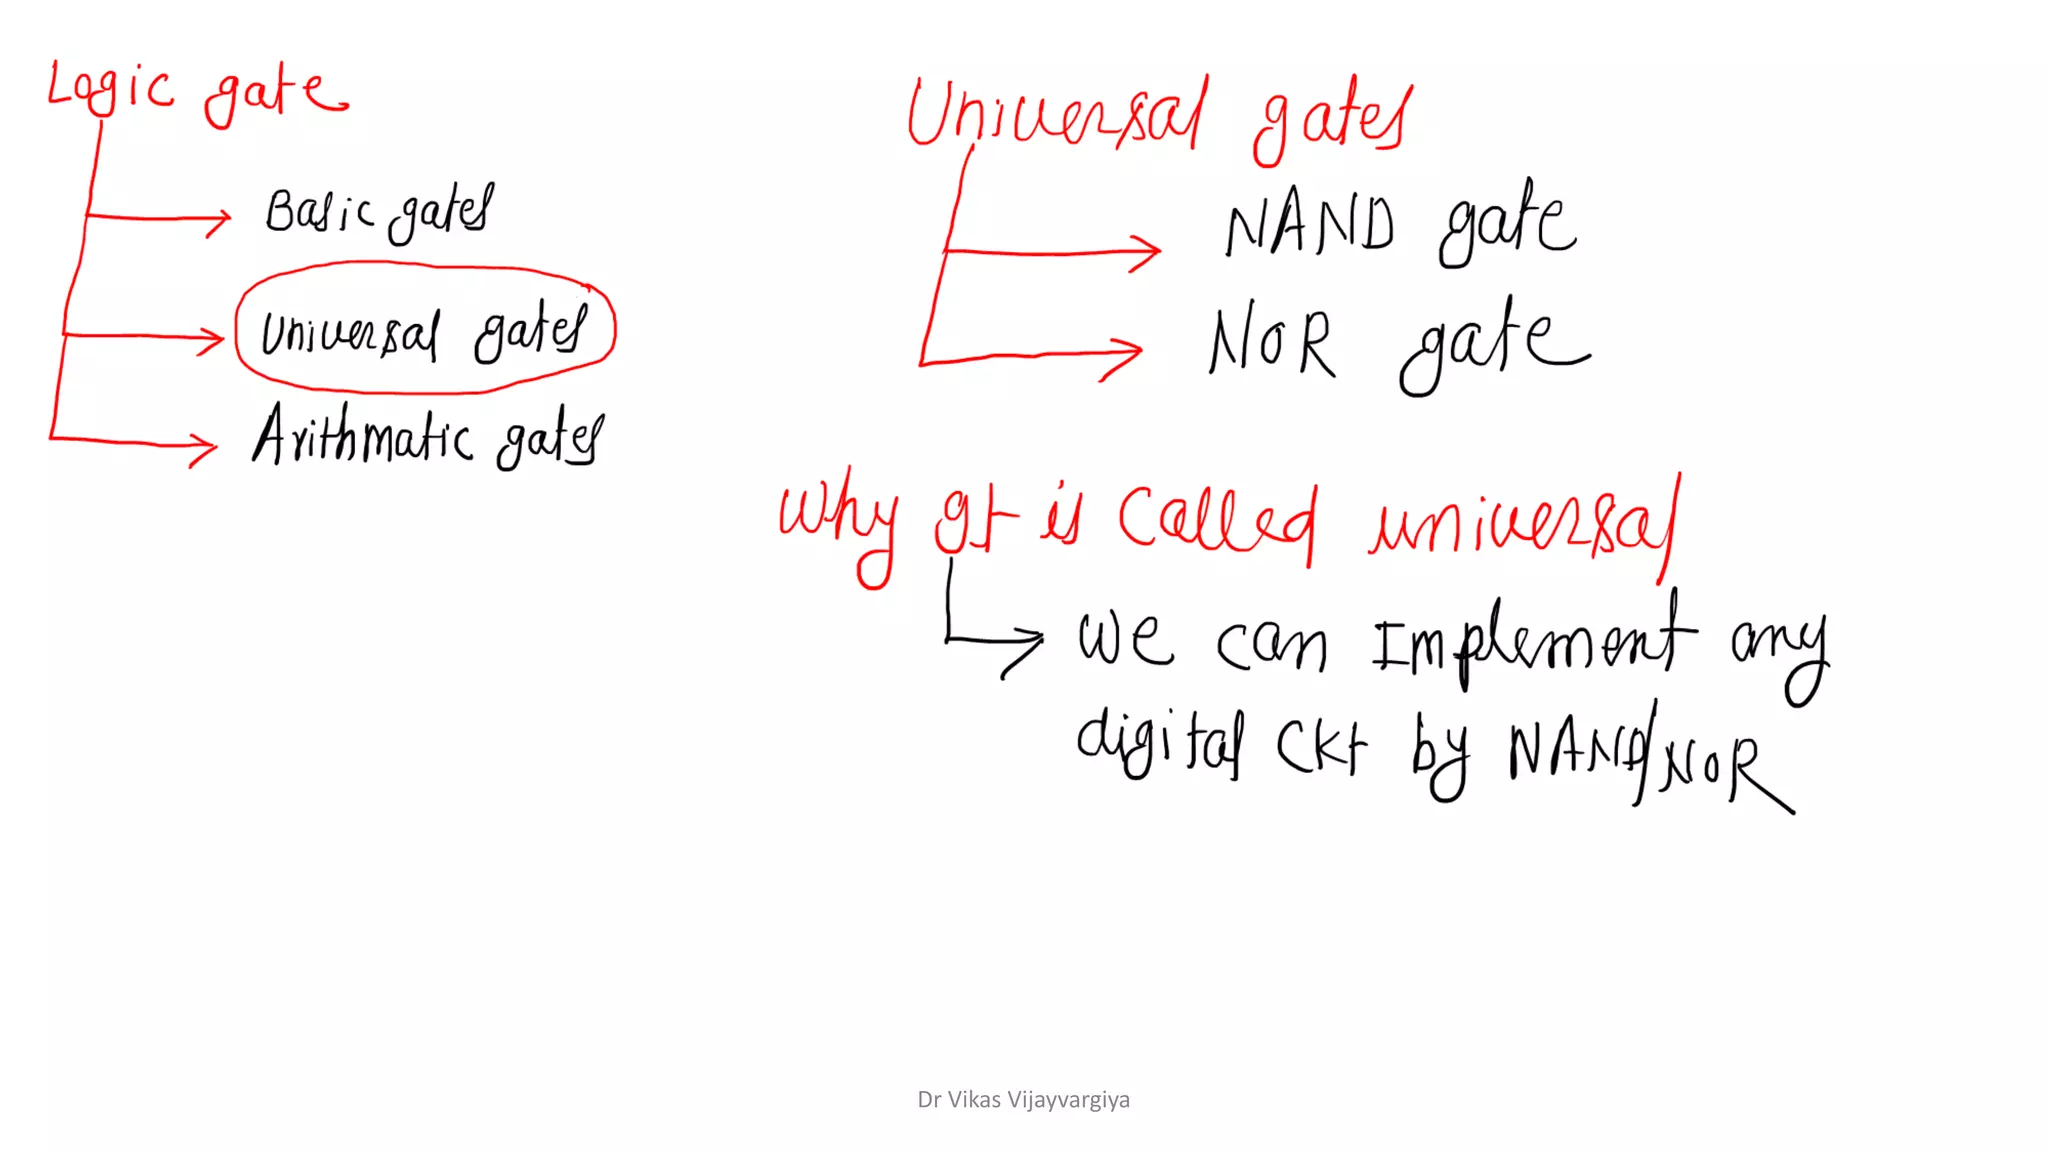 Logic gate
Basic gates
Universal gates
Arithmatic gates
Universal gates
NAND gate
NOR gate
Why It is called universal
We can Implement any
digital Ckt by NAND/NOR
Dr Vikas Vijayvargiya